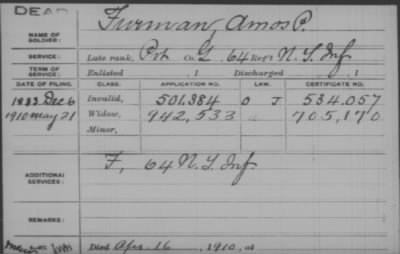 DEAD
NAME OF SOLDIER: Furman, Amos P.
SERVICE: Late rank, Pvt Co. G, 64 Reg't N.Y. Inf
TERM OF SERVICE: Enlisted , 1 Discharged , 1
DATE OF FILING. CLASS. APPLICATION NO. LAW. CERTIFICATE NO.
1883 Dec 6 Invalid, 501.384 O J 534.057
1910 May 21 Widow, 942,533 705,170
Minor,
ADDITIONAL SERVICES: F, 64 N.Y. Inf
REMARKS:
Died Apr. 16, 1910, at